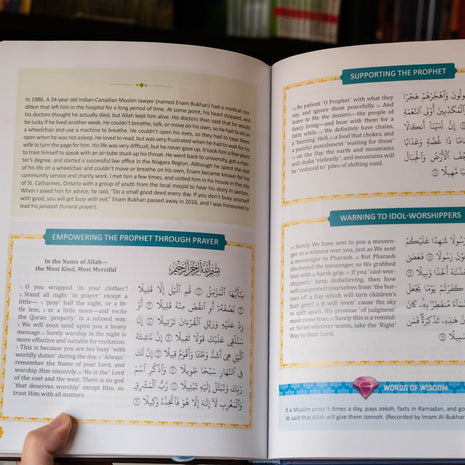 In 1986, A 34-year old Indian-Canadian Muslim lawyer (named Enam Bukhari) had a medical con-
dition that left him in the hospital for a long time. At some point, his heart stopped, and
his doctors thought he actually died, but Allah kept him alive. His doctors then said that he would
be lucky if he lived another week. He couldn't breathe, talk, or move on his own, so he had to sit on
a wheelchair and use a machine to breathe. He couldn't open his eyes, so they had to tape them
open when he was not asleep. He loved to read, but was very frustrated when he had to wait for his
wife to turn the page for him. His life was very difficult, but he never gave up. It took him a few years
to train himself to speak with an air-tube stuck up his throat. He went back to university, got a mas-
ter's degree, and started a successful law office in the Niagara Region. Although he spent the rest
of his life on a wheelchair and couldn't move or breathe on his own, Enam became known for his
community service and charity work. I met him a few times, and visited him in his house in the city
of St. Catharines, Ontario with a group of youth from the local masjid to hear his story in person.
When I asked him for advice, he said, "Do a small good deed every day. If you don't busy yourself
with good, you will get busy with evil." Enam Bukhari passed away in 2016, and I was honoured
to lead his janazah (funeral prayer).
EMPOWERING THE PROPHET THROUGH PRAYER
In the Name of Allah—
the Most Kind, Most Merciful
بِسْمِ ٱللَّهِ ٱلرَّحْمَـٰنِ ٱلرَّحِيمِ
1. O you wrapped 'in your clothes'!
2. Stand all night 'in prayer' except a
little— 3. 'pray' half the night, or a lit-
tle less, 4. or a little more—and recite
the Quran 'properly' in a relaxed way.
5. We will soon send upon you a heavy
message. 6. Surely worship in the night is
more effective and suitable for recitation.
7. This is because you are too busy 'with
worldly duties' during the day. 8. 'Always'
remember the Name of your Lord, and
worship Him sincerely. 9. 'He is the' Lord
of the east and the west. There is no god
'that deserves worship' except Him, so
trust Him with all matters.
يَـٰٓأَيُّهَا ٱلْمُزَّمِّلُ ١ قُمِ ٱلَّيْلَ إِلَّا قَلِيلًا
٢ نِّصْفَهُۥٓ أَوِ ٱنقُصْ مِنْهُ قَلِيلًا ٣ أَوْ
زِدْ عَلَيْهِ وَرَتِّلِ ٱلْقُرْءَانَ تَرْتِيلًا ٤ إِنَّا
سَنُلْقِى عَلَيْكَ قَوْلًا ثَقِيلًا ٥ إِنَّ نَاشِئَةَ
ٱلَّيْلِ هِىَ أَشَدُّ وَطْـًٔا وَأَقْوَمُ قِيلًا ٦ إِنَّ لَكَ
فِى ٱلنَّهَارِ سَبْحًا طَوِيلًا ٧ وَٱذْكُرِ ٱسْمَ
رَبِّكَ وَتَبَتَّلْ إِلَيْهِ تَبْتِيلًا ٨ رَّبُّ ٱلْمَشْرِقِ
وَٱلْمَغْرِبِ لَآ إِلَـٰهَ إِلَّا هُوَ فَٱتَّخِذْهُ وَكِيلًا ٩
SUPPORTING THE PROPHET
10. Be patient 'O Prophet' with what they
say, and ignore them respectfully. 11. And
leave to Me the deniers—the people of
fancy living—and bear with them for a
little while. 12. We definitely have chains,
a 'burning' Hell, 13. food that chokes, and
a painful punishment 'waiting for them'
14. on the Day the earth and mountains
will shake 'violently', and mountains will
be 'reduced to' piles of shifting sand.
WARNING TO IDOL-WORSHIPPERS
15. Surely We have sent to you a messen-
ger as a witness over you, just as We sent
a messenger to Pharaoh. 16. But Pharaoh
disobeyed the messenger, so We grabbed
him with a harsh grip. 17. If you 'idol-wor-
shippers' keep disbelieving, then how
will you protect yourselves from 'the hor-
rors of' a Day which will turn children's
hair grey? 18. It will 'even' cause the sky
to split apart. His promise 'of judgment'
must come true. 19. Surely this is a remind-
er. So let whoever wants, take the 'Right'
Way to their Lord.
WORDS OF WISDOM
If a Muslim prays 5 times a day, pays zakah, fasts in Ramadan, and go
ﷺ said that Allah will give them Jannah. {Recorded by Imam Al-Bukhar